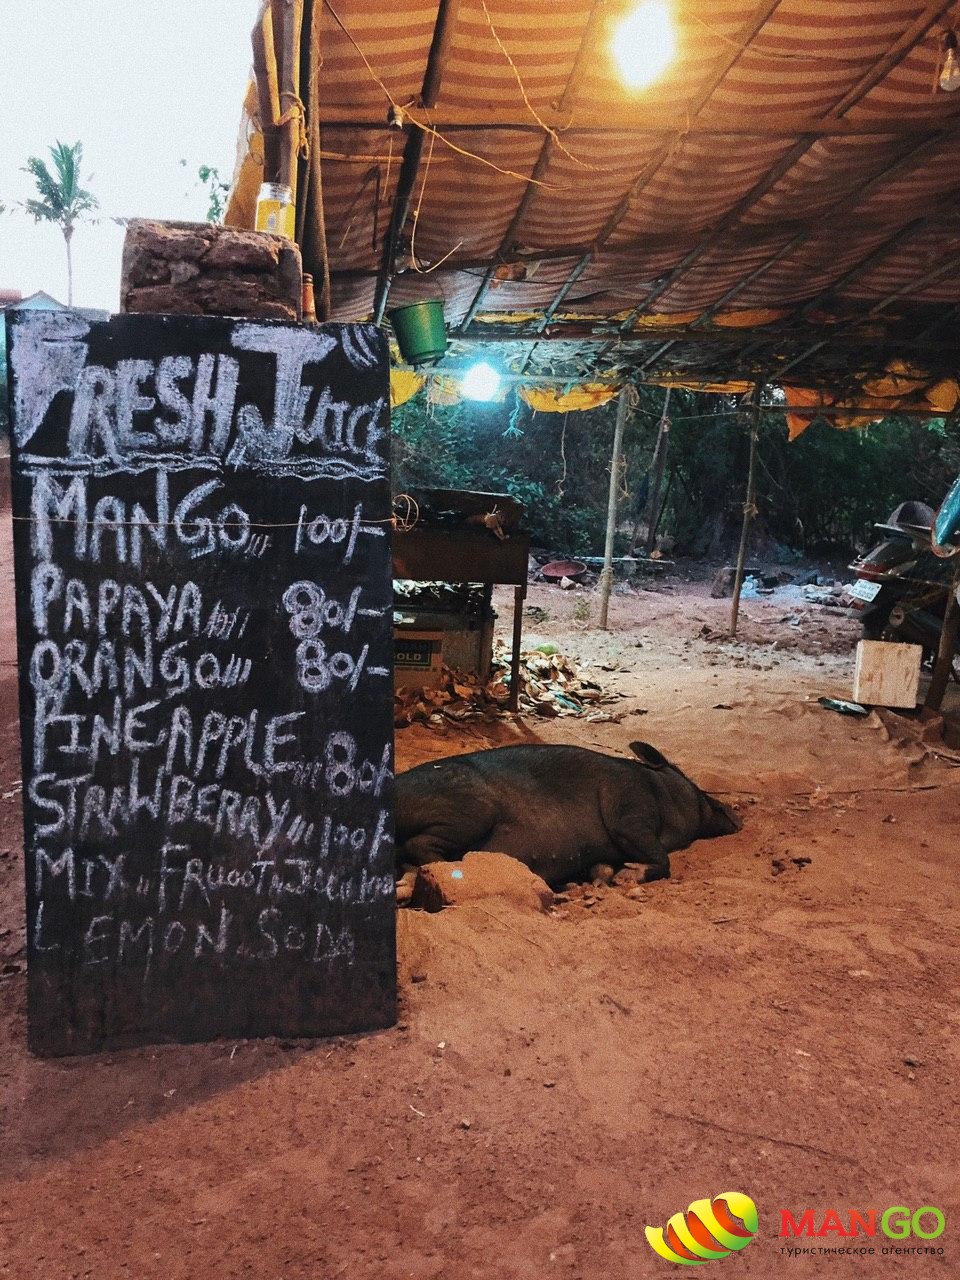 FRESH JUICE
MANGO 100/-
PAPAYA 80/-
ORANGO 80/-
PINEAPPLE 80/-
STRAWBERRY 100/-
MIX FRUOOT
LEMON SODA
GOLD
MANGO
туристическое агентство